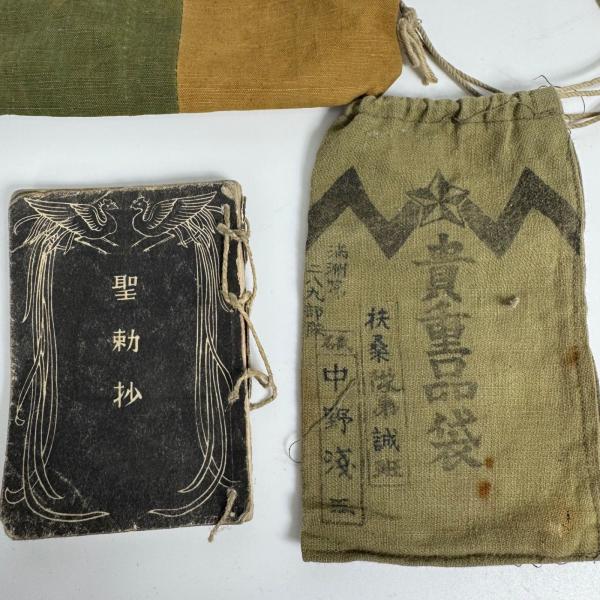 聖勅抄
貴重品袋
扶桑隊 誠班
満洲第
二八九部隊
中野淺